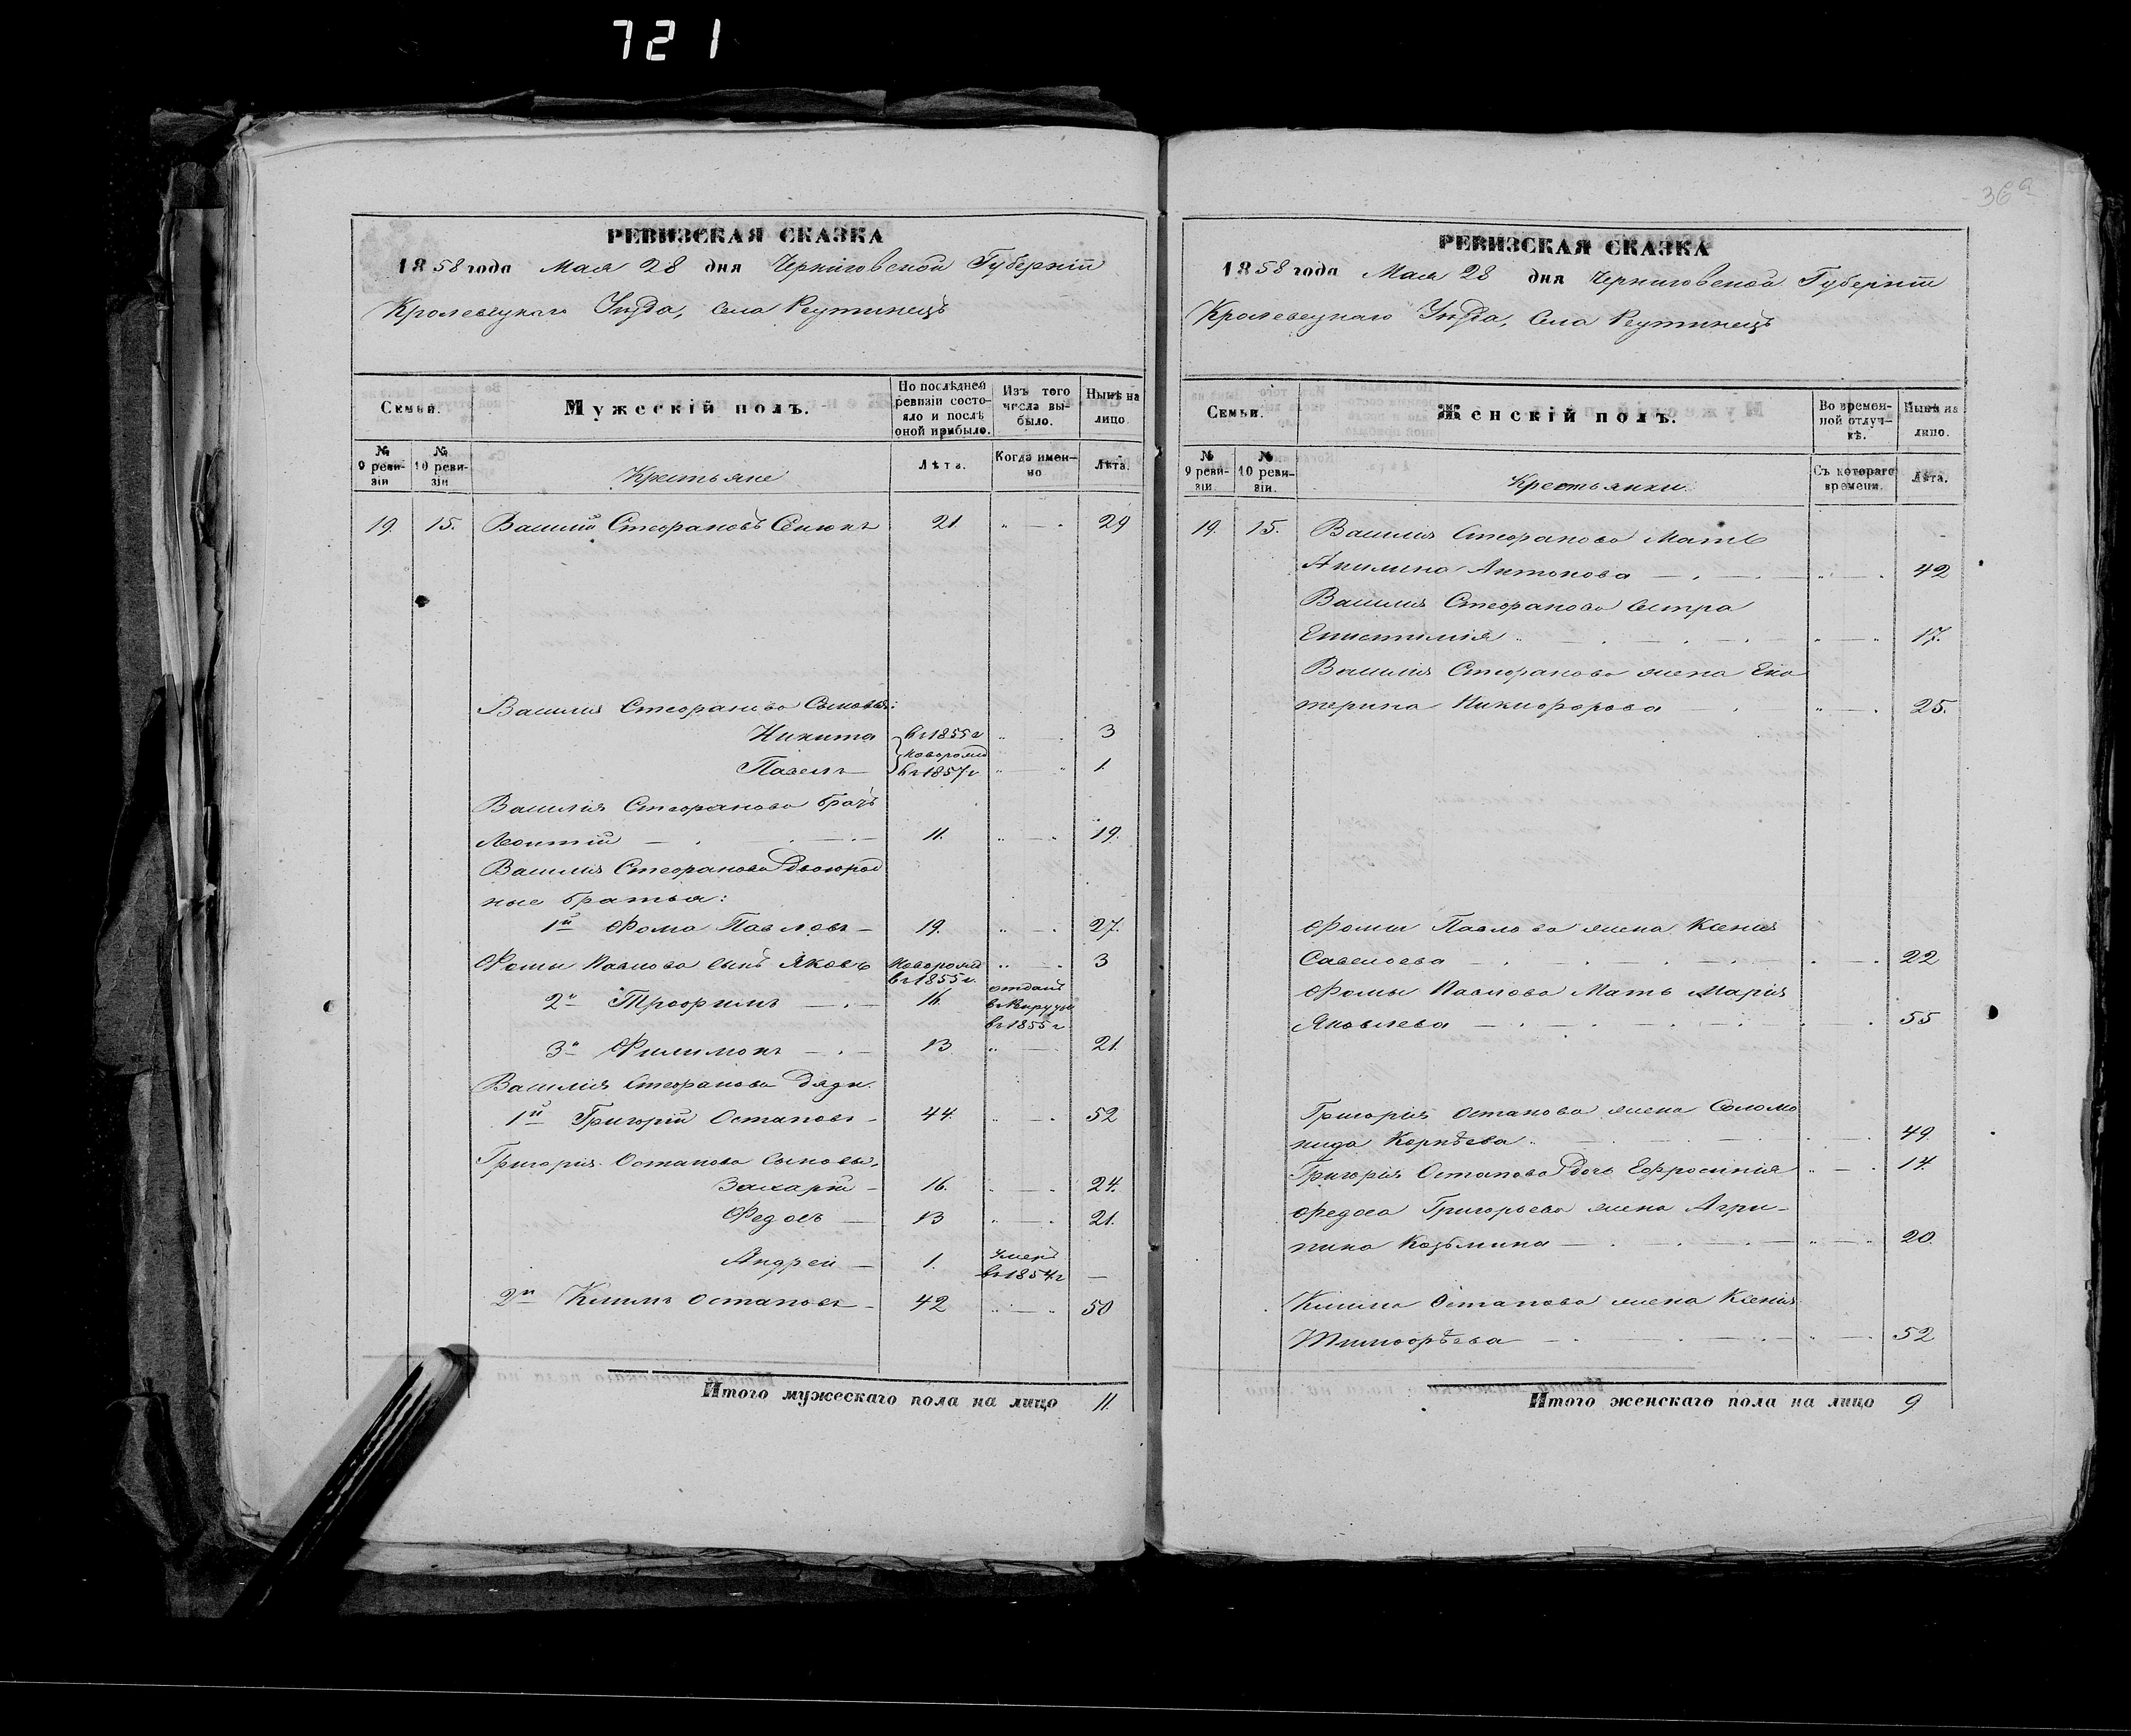 721
36а
РЕВИЗСКАЯ СКАЗКА
1858 года Мая 28 дня Черниговской Губерніи
Кролевецкаго Уѣзда, Села Реутинецъ
Семьи.
Мужескій полъ.
По послѣдней ревизіи состояло и послѣ оной прибыло.
Изъ того числа выбыло.
Нынѣ на лицо
№ 9 ревизіи
№ 10 ревизіи
Крестьяне
Лѣта.
Когда именно
Лѣта.
19. 15. Василій Стефановъ 21. 29
Василія Стефанова Сыновья:
Никита въ 1855 г 3
новорожд
Павелъ въ 1857 г 1.
Василія Стефанова братъ
Леонтій 11. 19.
Василія Стефанова Двоюрод
ные братья:
1й Фома Павловъ 19. 27.
Фомы Павлова сынъ Яковъ новорожд въ 1855 г. 3
2й Трофимъ 16. отданъ въ Рекруты въ 1855 г
3й Филимонъ 13 21.
Василія Стефанова дяди.
1й Григорій Остаповъ 44. 52
Григорія Остапова Сыновья,
Захарій 16. 24.
Федосъ 13 21.
Андрей 1. умеръ въ 1854 г —
2й Климъ Остаповъ 42 50
Итого мужескаго пола на лицо 11.
РЕВИЗСКАЯ СКАЗКА
1858 года Мая 28 дня Черниговской Губерніи
Кролевецкаго Уѣзда, Села Реутинецъ
Семьи.
Женскій полъ.
Во временной отлучкѣ.
Нынѣ на лицо.
№ 9 ревизіи.
№ 10 ревизіи.
Крестьянки.
Съ котораго времени.
Лѣта.
19. 15. Василія Стефанова Мать
Акилина Антонова 42
Василія Стефанова Сестра
Епистимія 17.
Василія Стефанова жена Ека
терина Никифорова 25.
Фомы Павлова жена Ксенія
Савельева 22
Фомы Павлова Мать Марія
Яковлева 55
Григорія Остапова жена Соломо
нида Корнѣева 49.
Григорія Остапова дочь Ефросинія 14
Федоса Григорьева жена Агри-
пина Козьмина 20.
Клима Остапова жена Ксенія
Тимофѣева 52
Итого женскаго пола на лицо 9